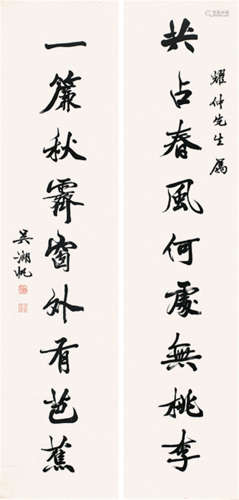 耀仲先生屬
共占春風何處無桃李
一簾秋霽窗外有芭蕉
吳湖帆